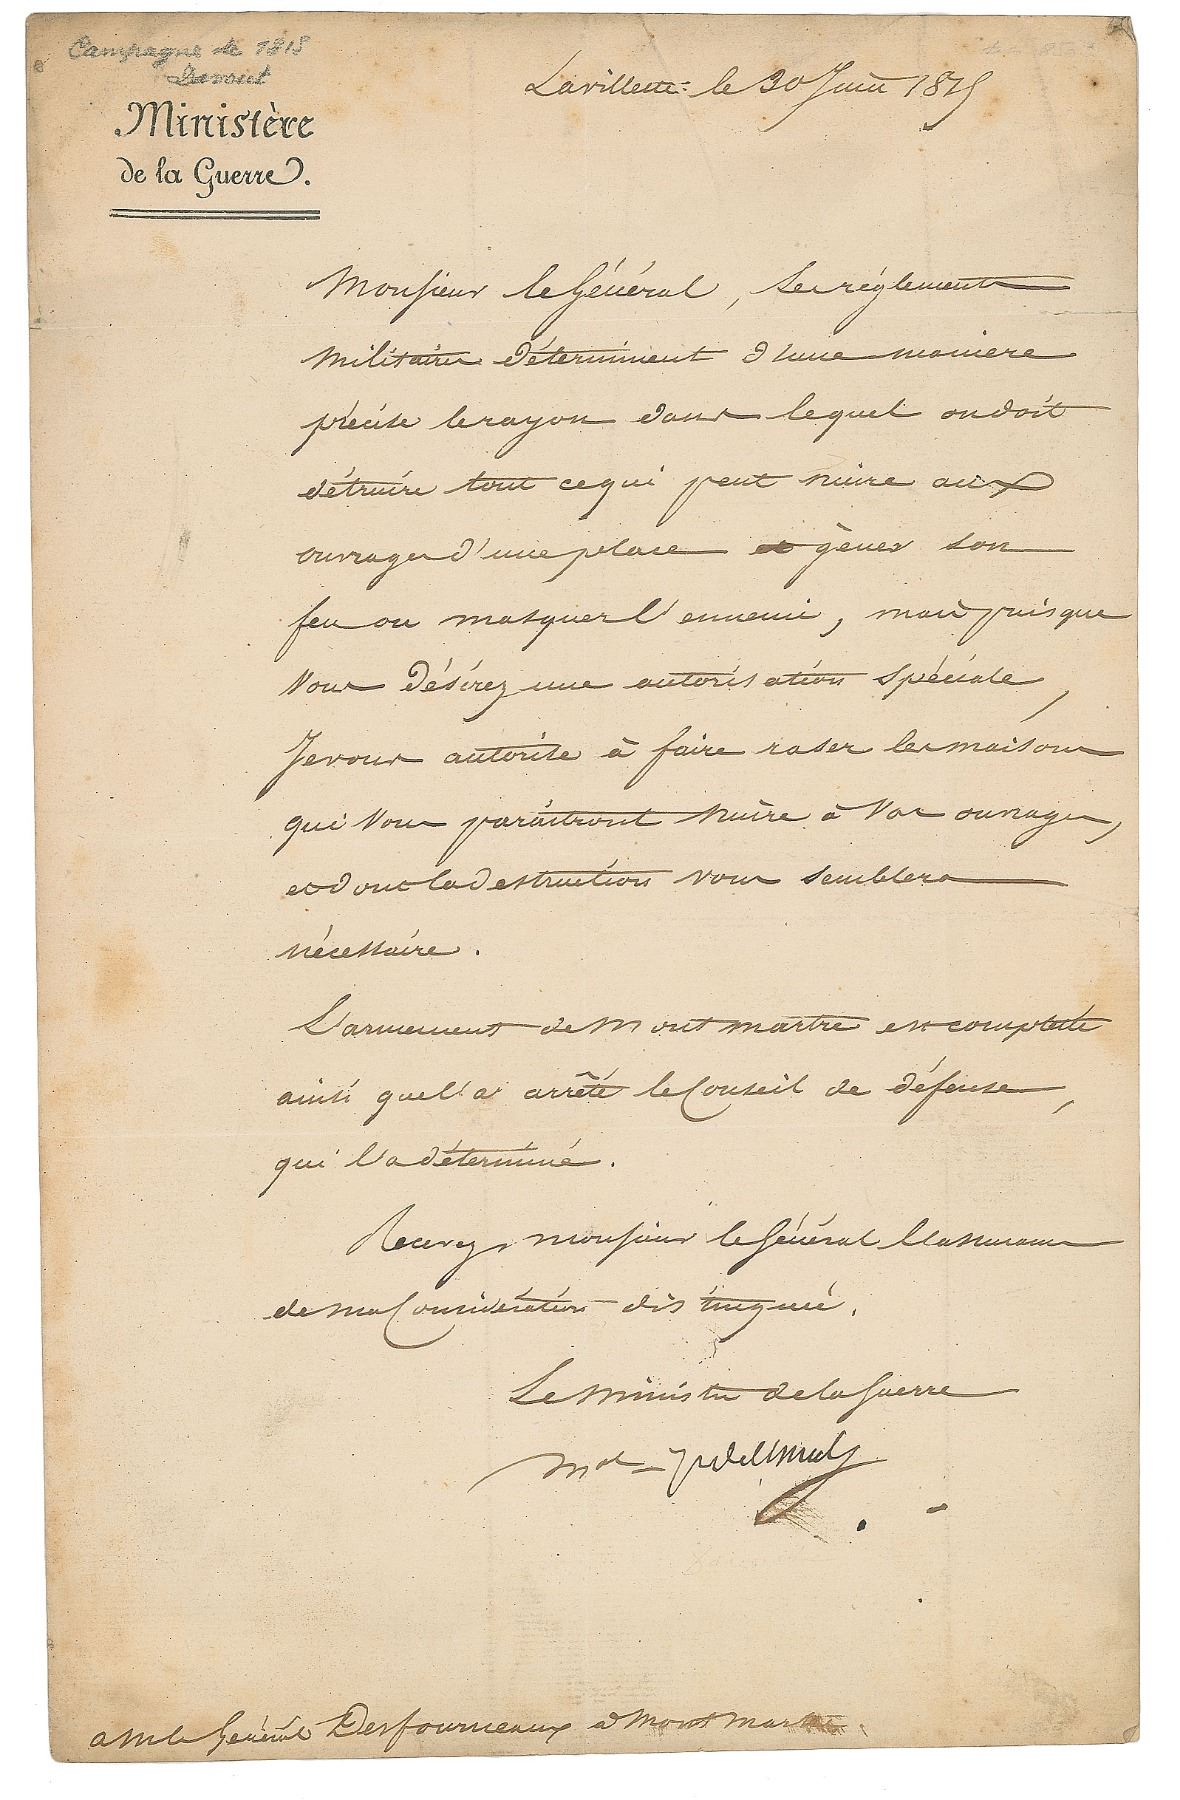 Campagne de 1815
Davout
Ministère
de la Guerre.
Lavillette le 30 Juin 1815
Monsieur le Général, Les réglements
militaires déterminent d'une maniere
précise le rayon dans lequel on doit
détruire tout ce qui peut nuire aux
ouvrages d'une place et gèner son
feu ou masquer l'ennemi, mais puisque
vous désirez une autorisation spéciale,
Je vous autorise à faire raser les maisons
qui vous paraitront nuire à vos ouvrages,
et dont la destruction vous semblera
nécessaire.
L'armement de Montmartre est complette
ainsi que l'a arrêté le Conseil de défense,
qui l'a déterminé.
Recevez, monsieur le Général l'assurance
de ma Considération distinguée.
Le Ministre de la Guerre
Mal
a M le Général Desfourneaux à Montmartre